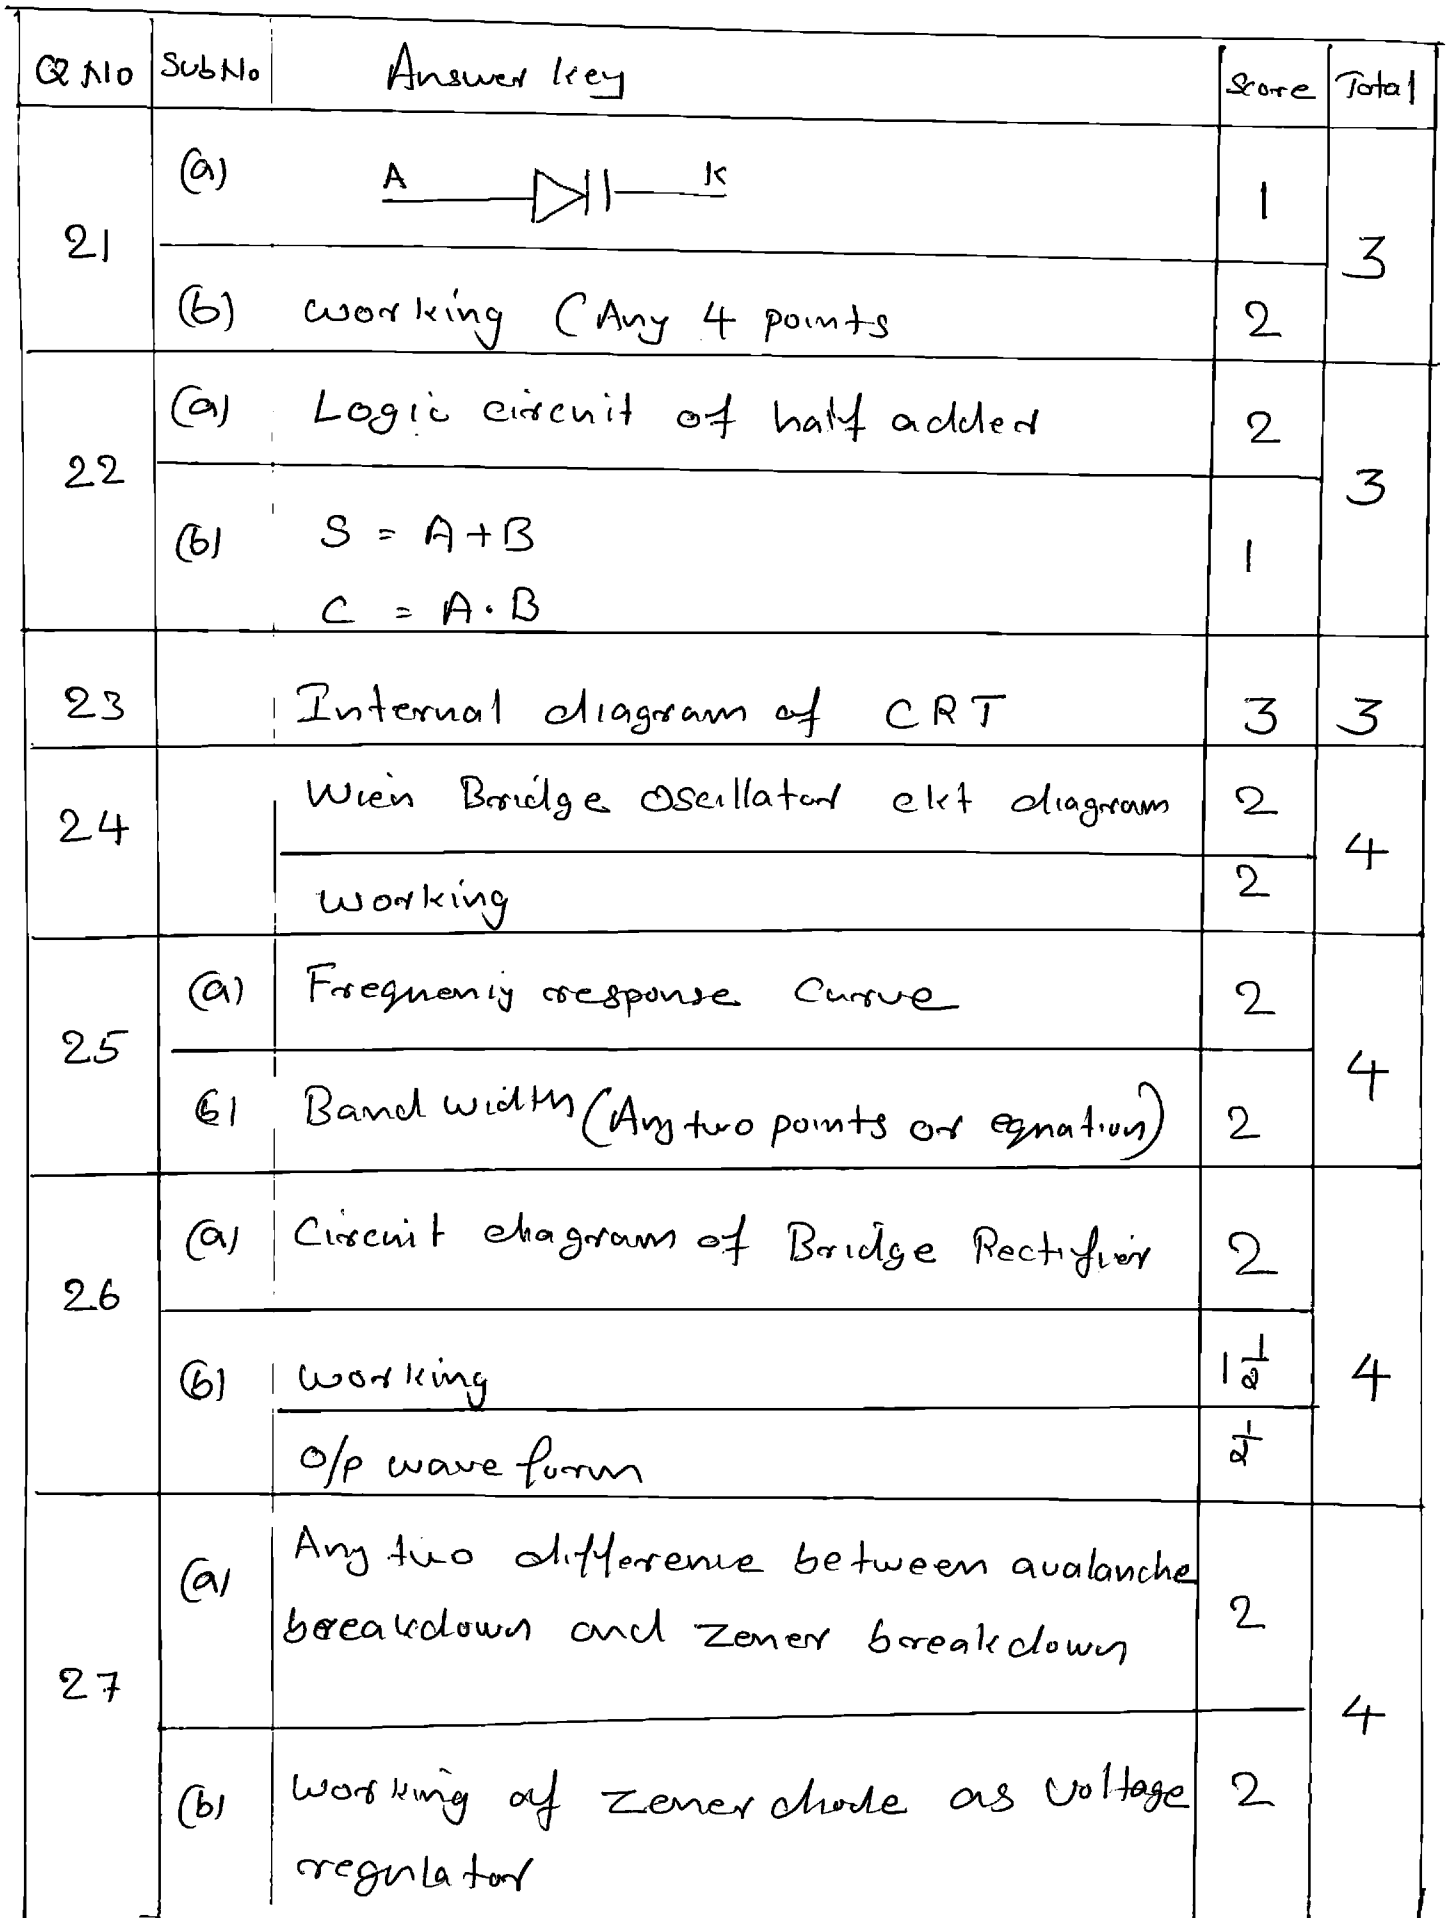 Q No Sub No Answer key Score Total
21 (a) A K 1 3
(b) working (Any 4 points 2
22 (a) Logic circuit of half adder 2 3
(b) S = A+B 1
C = A.B
23 Internal diagram of CRT 3 3
24 Wien Bridge Oscillator ckt diagram 2 4
working 2
25 (a) Frequency response Curve 2 4
(b) Band width (Any two points or equation) 2
26 (a) Circuit diagram of Bridge Rectifier 2 4
(b) working 1 1/2
o/p wave form 1/2
27 (a) Any two difference between avalanche 2 4
breakdown and zener breakdown
(b) working of zener diode as voltage 2
regulator